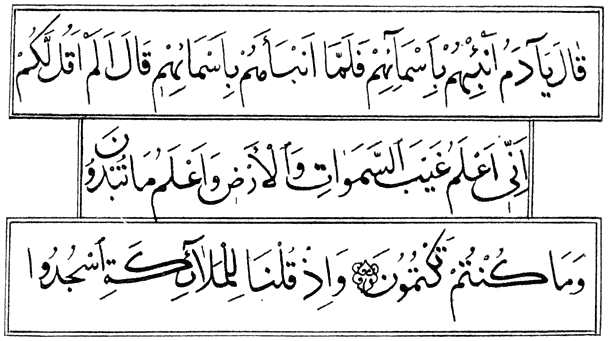 قَالَ يَآ اٰدَمُ اَنْبِئْهُمْ بِاَسْمَآئِهِمْ فَلَمَّا اَنْبَاَهُمْ بِاَسْمَائِهِمْ قَالَ اَلَمْ اَقُلْ لَكُمْ
اِنِّى اَعْلَمُ غَيْبَ السَّمٰوَاتِ وَالْاَرْضِ وَاَعْلَمُ مَا تُبْدُونَ
وَمَا كُنْتُمْ تَكْتُمُونَ وَاِذْ قُلْنَا لِلْمَلَآئِكَةِ اسْجُدُوا